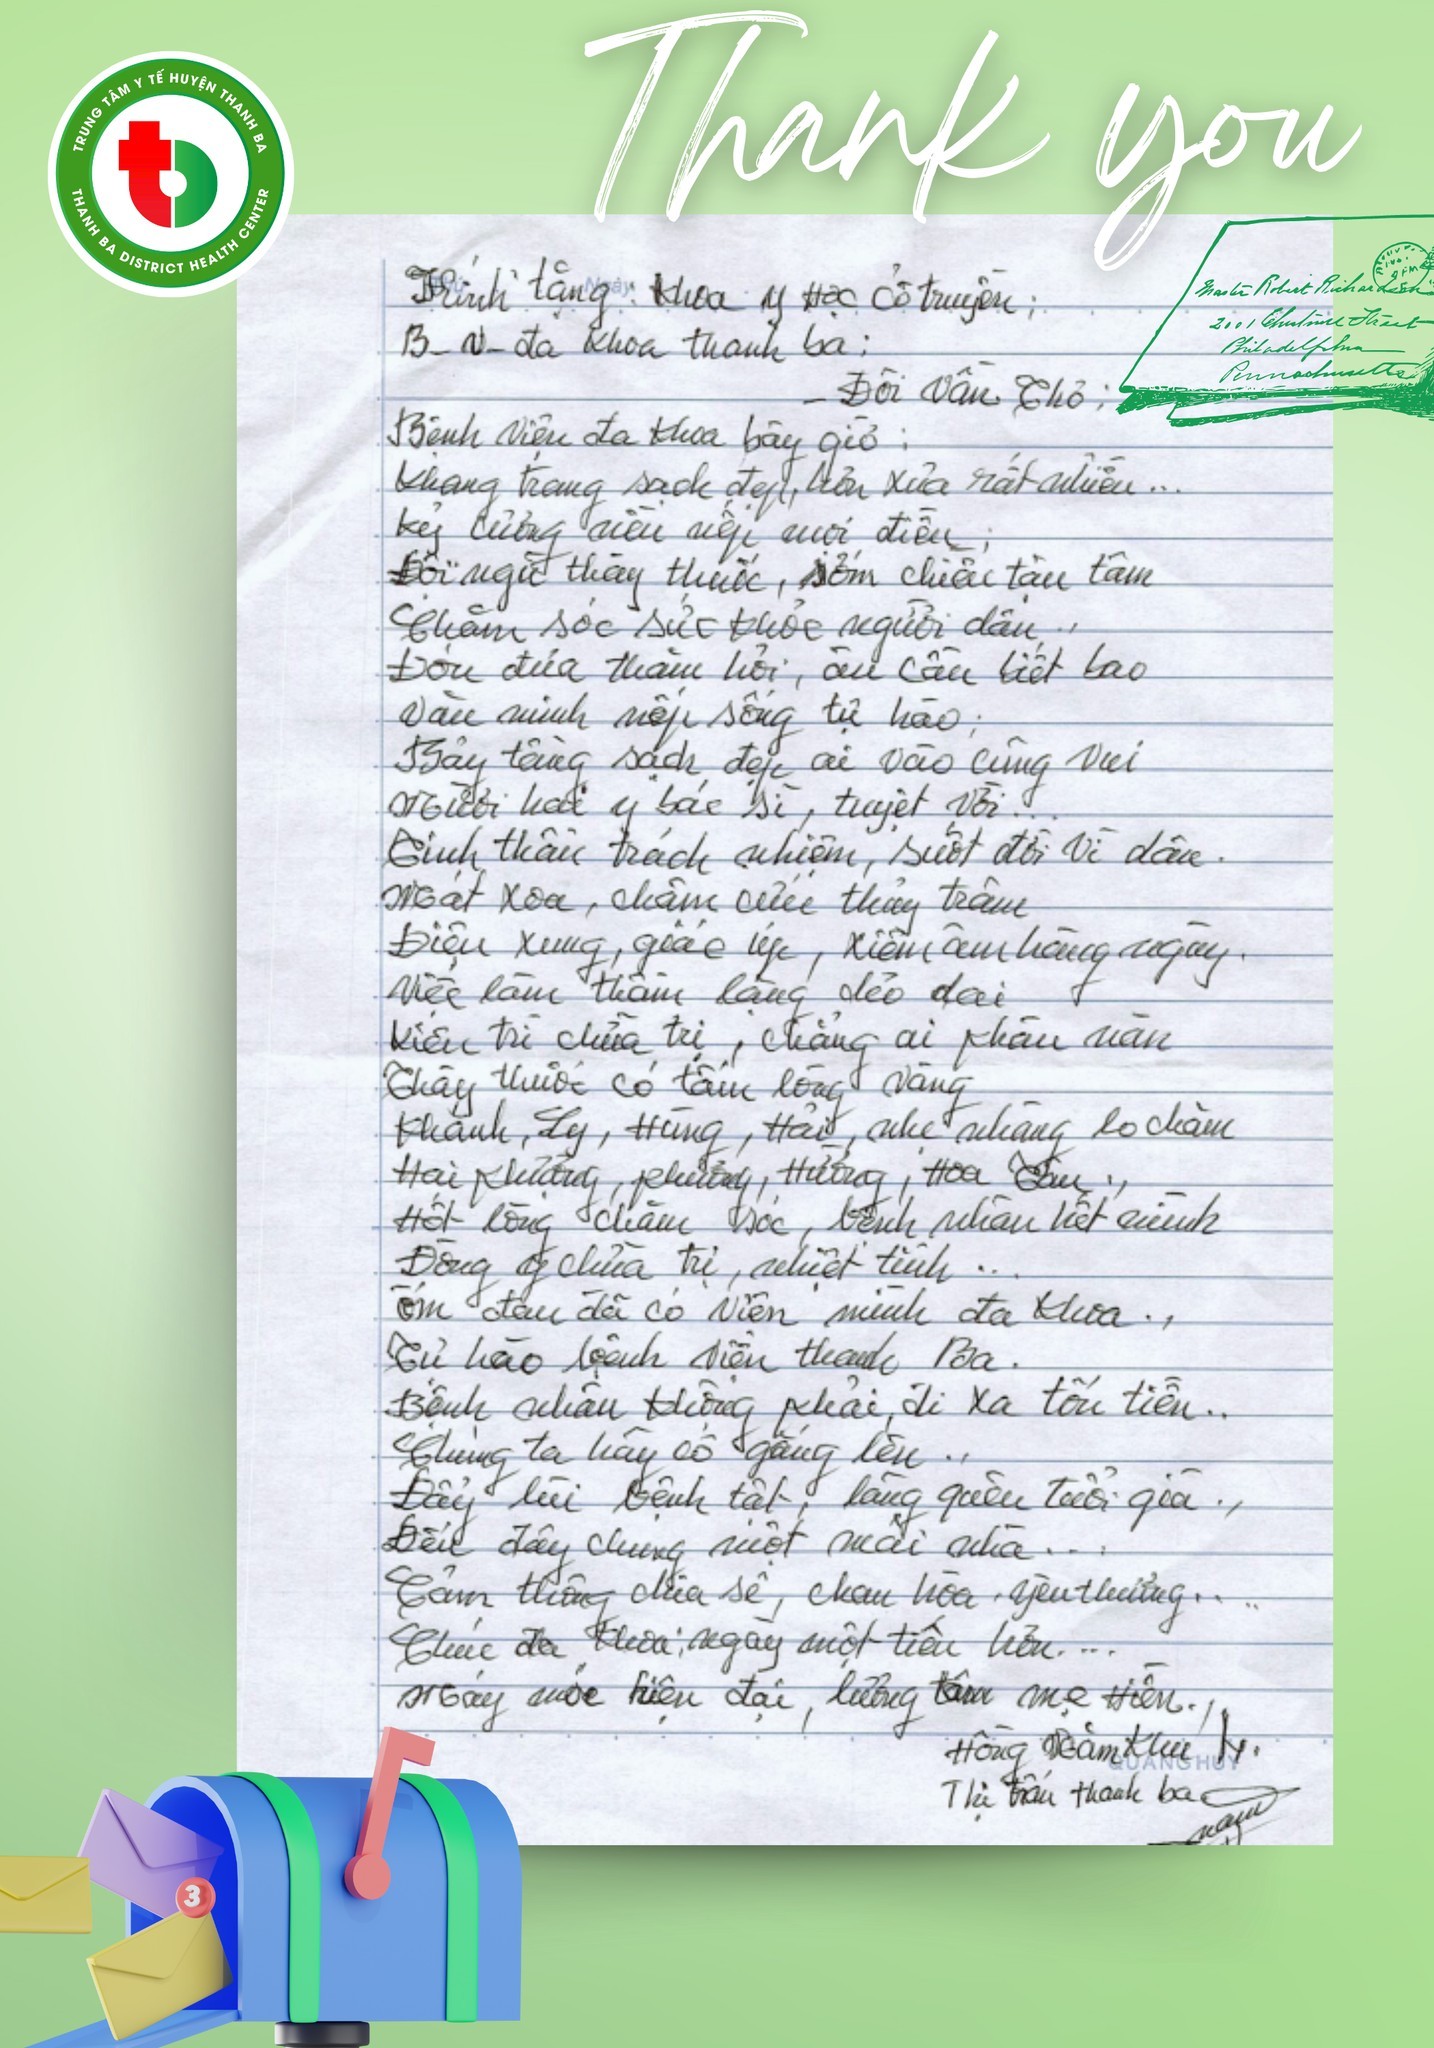 Thank you
TRUNG TÂM Y TẾ HUYỆN THANH BA
THANH BA DISTRICT HEALTH CENTER
Master Robert
2001 Street
Philadelphia
Kính tặng: Khoa y Học Cổ truyền;
B-V-đa khoa thanh ba:
- Đôi Vần Thơ:
Bệnh viện đa khoa bây giờ:
Khang trang sạch đẹp, hơn xưa rất nhiều...
Kỷ cương nền nếp mới điều;
Đội ngũ thầy thuốc, sớm chiều tận tâm
Chăm sóc sức khỏe người dân.,
Đón đưa thăm hỏi, ân cần biết bao
Văn minh nếp sống tự hào;
Bảy tầng sạch đẹp ai vào cũng vui
Mười hai y bác sĩ, tuyệt vời...
Tinh thần trách nhiệm, suốt đời vì dân.
Mát xoa, châm cứu thủy trâm
Điện xung, giác úp, xiêm âm hàng ngày.
Việc làm thầm lặng dẻo dai
Kiên trì chữa trị, chẳng ai phàn nàn
Thầy thuốc có tấm lòng vàng
Khánh, Ly, Hùng, Hải, nhẹ nhàng lo chăm
Hai Phượng, Phương, Hường, Hoa
Hết lòng chăm sóc, bệnh nhân hết mình
Đông y chữa trị, nhiệt tình...
ốm đau đã có viện mình đa khoa.,
Tự hào bệnh viện thanh Ba.
Bệnh nhân không phải, đi xa tốn tiền..
Chúng ta hãy cố gắng lên.,
Đẩy lùi bệnh tật, lãng quên tuổi già.,
Đến đây chung một mái nhà...
Cảm thông chia sẻ, chan hòa yêu thương....
Chúc đa khoa, ngày một tiến hơn....
Máy móc hiện đại, lương tâm mẹ Hiền.,
Hồng Khu
QUANG HUY
Thị trấn thanh ba
3